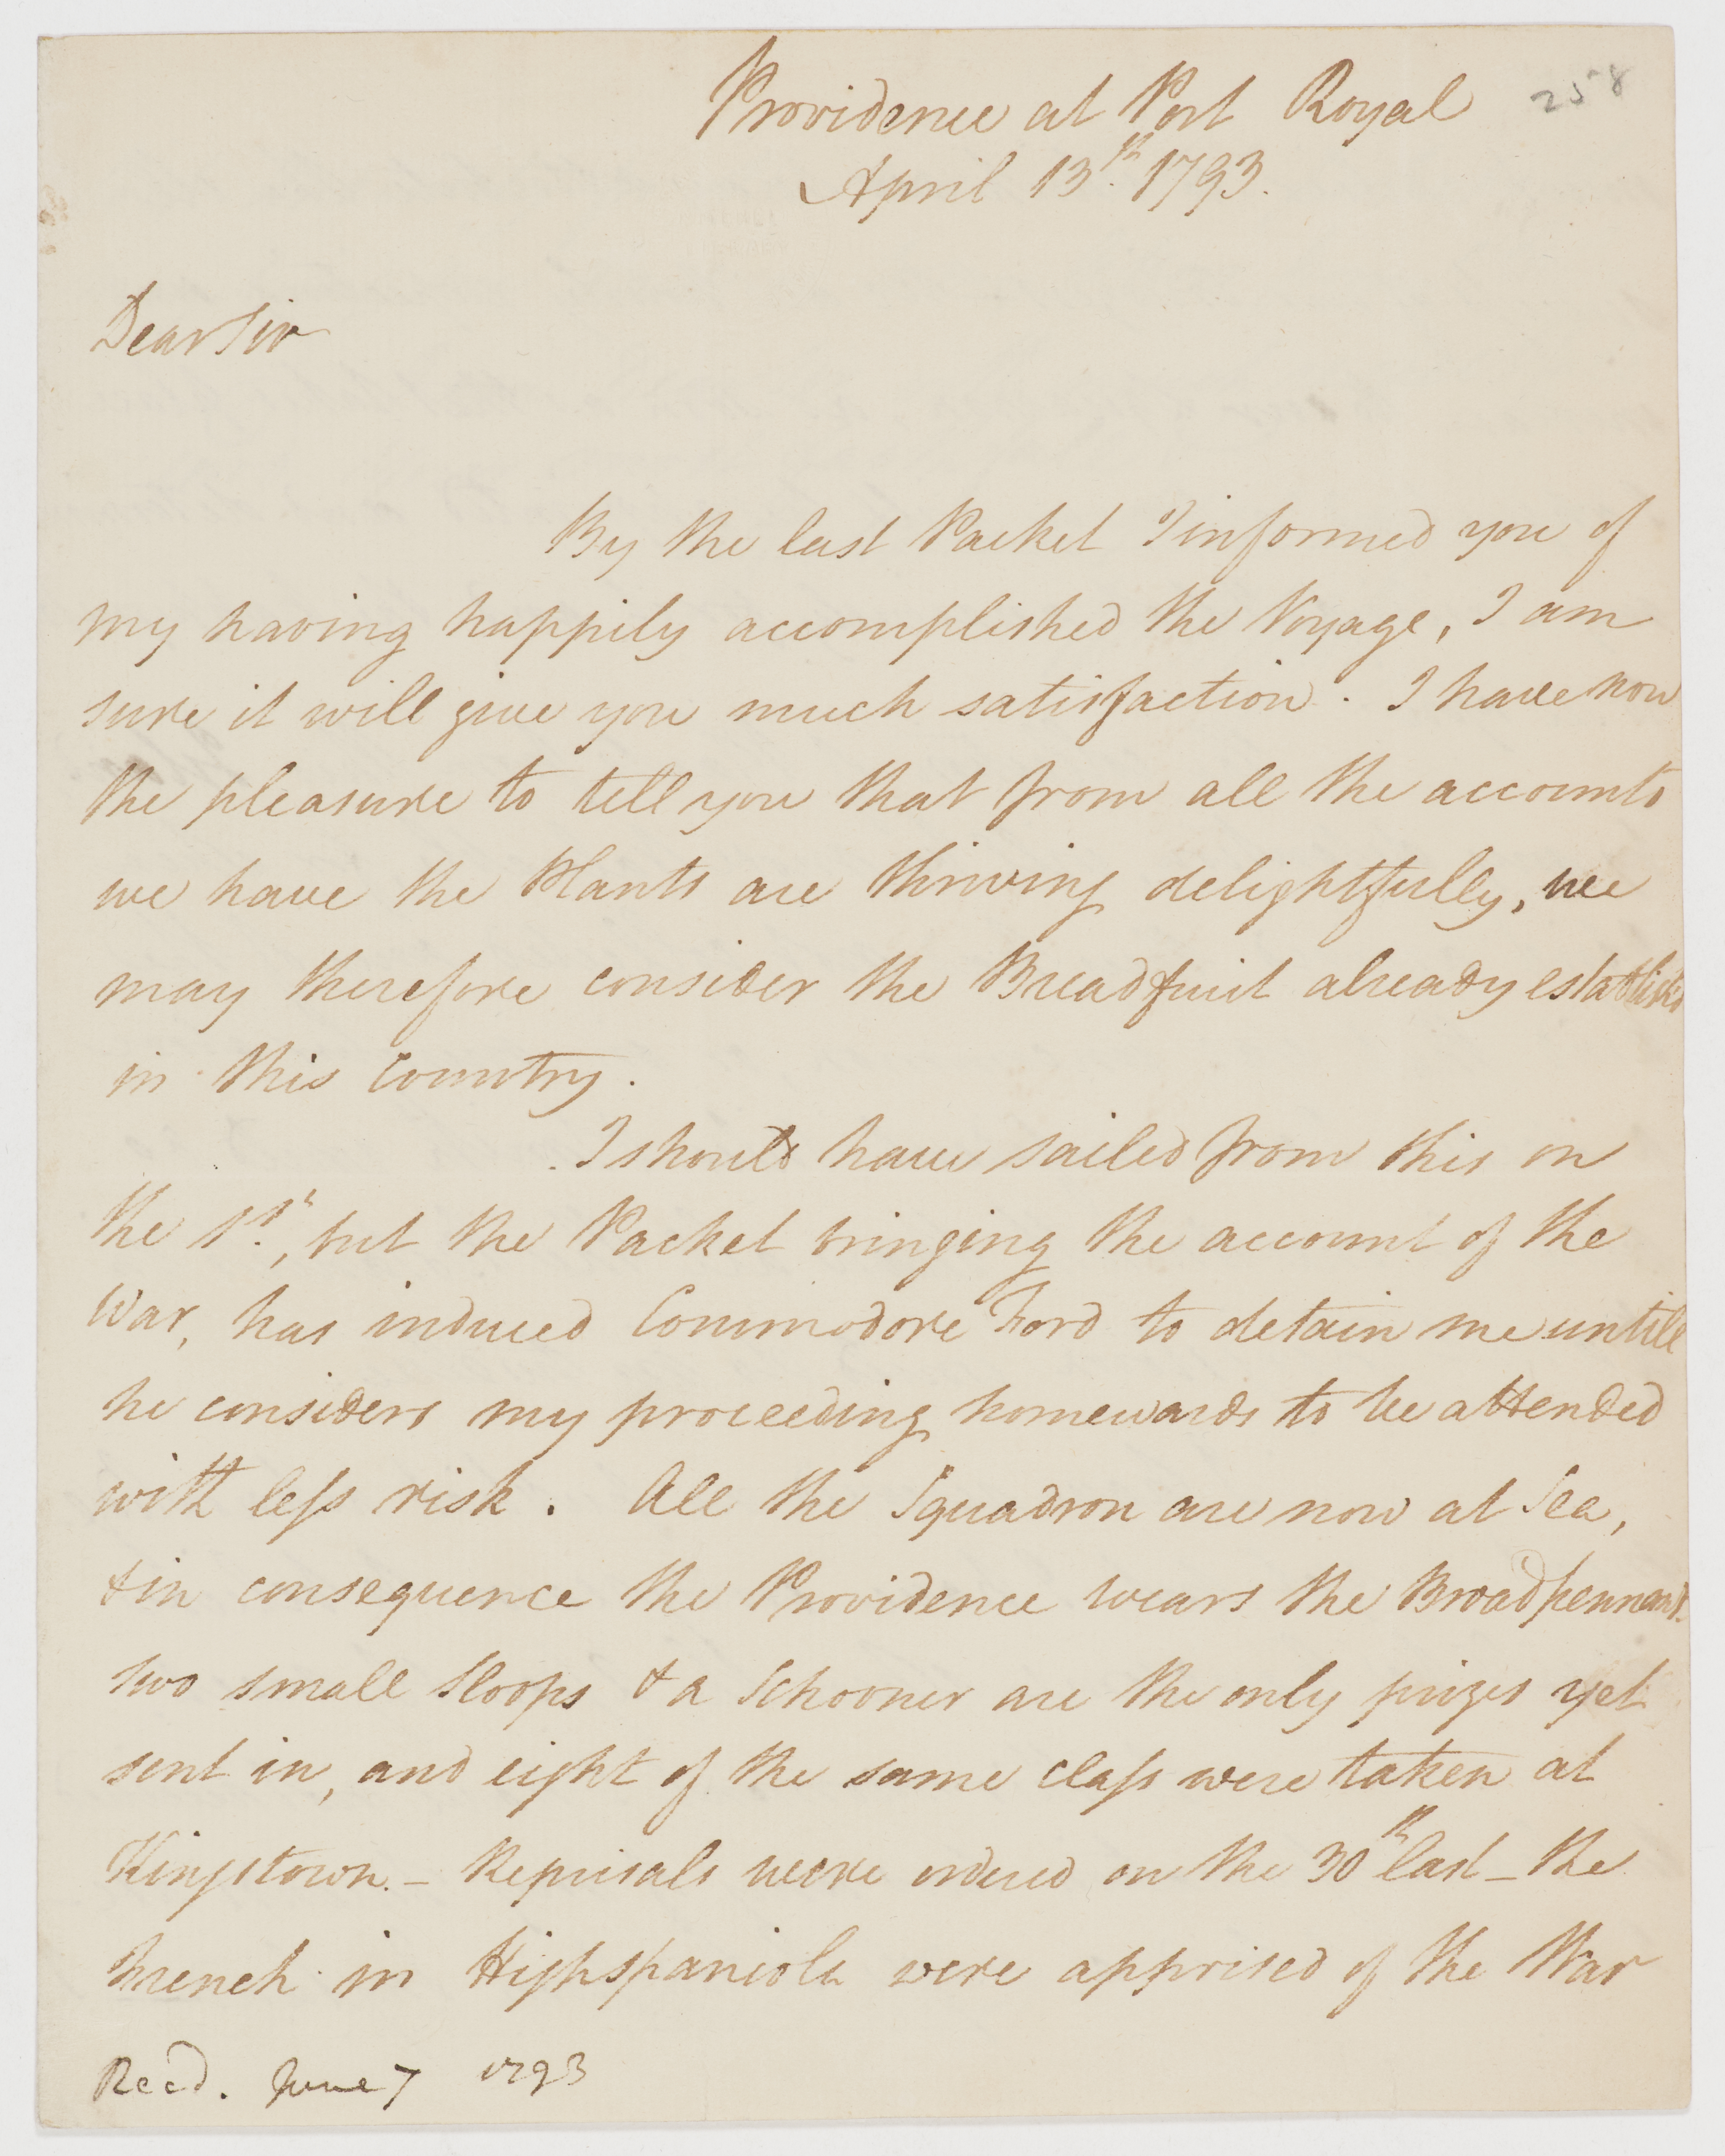 Providence at Port Royal
258
April 13th. 1793.
Dear Sir
By the last Packet I informed you of
my having happily accomplished the Voyage, I am
sure it will give you much satisfaction. I have now
the pleasure to tell you that from all the accounts
we have the Plants are thriving delightfully, we
may therefore consider the Breadfruit already establish'd
in this Country.
I should have sailed from this on
the 1st., but the Packet bringing the account of the
War, has induced Commodore Ford to detain me untill
he considers my proceeding homewards to be attended
with less risk. All the Squadron are now at Sea,
& in consequence the Providence wears the Broad pennant.
two small Sloops & a Schooner are the only prizes yet
sent in, and eight of the same class were taken at
Kingstown. – Reprisals were ordered on the 30th last – the
French in Highspaniola were apprised of the War
Recd. June 7 1793